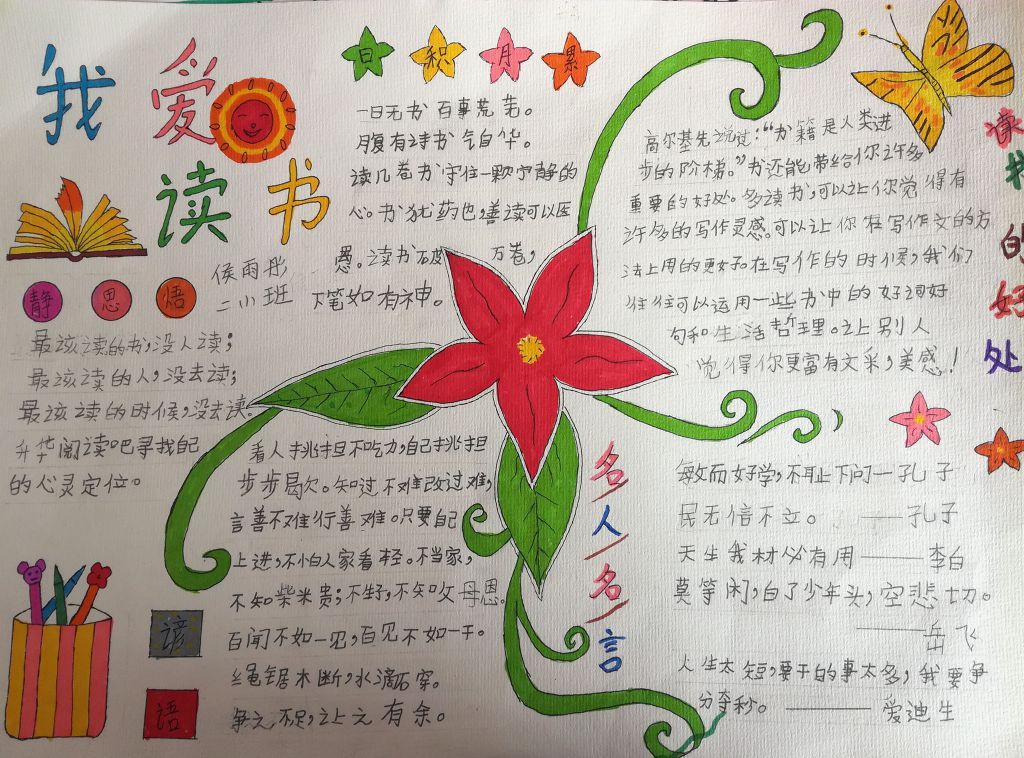 我爱
读书
侯雨彤
二小班
日积月累
一日无书 百事荒芜。
腹有诗书 气自华。
读几卷书 守住一颗宁静的
心。书犹药也,善读可以医
愚。读书破 万卷,
下笔如有神。
静思悟
最该读的书,没人读;
最该读的人,没去读;
最该读的时候,没去读。
升华阅读吧寻找自己
的心灵定位。
读书的好处
高尔基先说过:“书籍是人类进
步的阶梯。”书还能带给你许多
重要的好处。多读书,可以让你觉得有
许多的写作灵感。可以让你在写作文的方
法上用的更好。在写作的时候,我们
往往可以运用一些书中的好词好
句和生活哲理。让别人
觉得你更富有文采,美感!
谚语
看人挑担不吃力,自己挑担
步步曷欠。知过不难改过难,
言善不难行善难。只要自己
上进,不小白人家看轻。不当家,
不知柴米贵;不生子,不知父母恩。
百闻不如一见,百见不如一干。
绳锯木断,水滴石穿。
争之不足,让之有余。
名人名言
敏而好学,不耻下问一孔子
民无信不立。——孔子
天生我材必有用——李白
莫等闲,白了少年头,空悲切。
——岳飞
人生太短,要干的事太多,我要争
分夺秒。——爱迪生